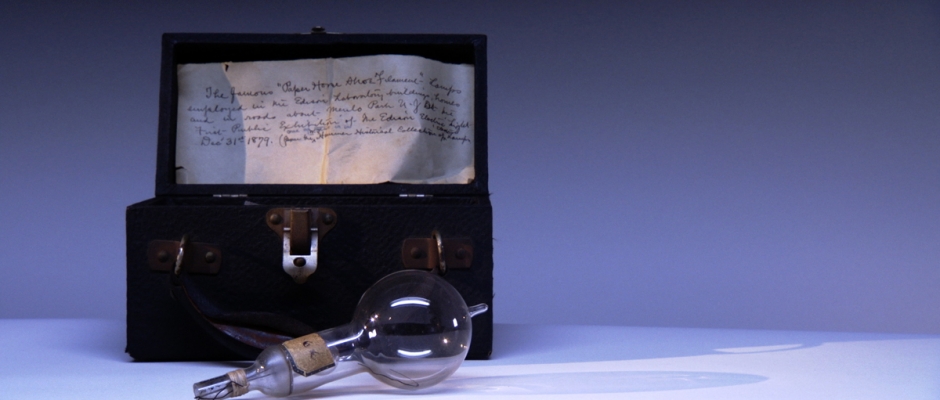 The famous "Paper Horse Shoe Filament" Lamps
employed in the Edison Laboratory buildings, houses
and in roads about Menlo Park N.J. At the
First Public Exhibition of the Edison Electric Light
Dec 31st 1879. (from Hammer Historical Collection of Lamps